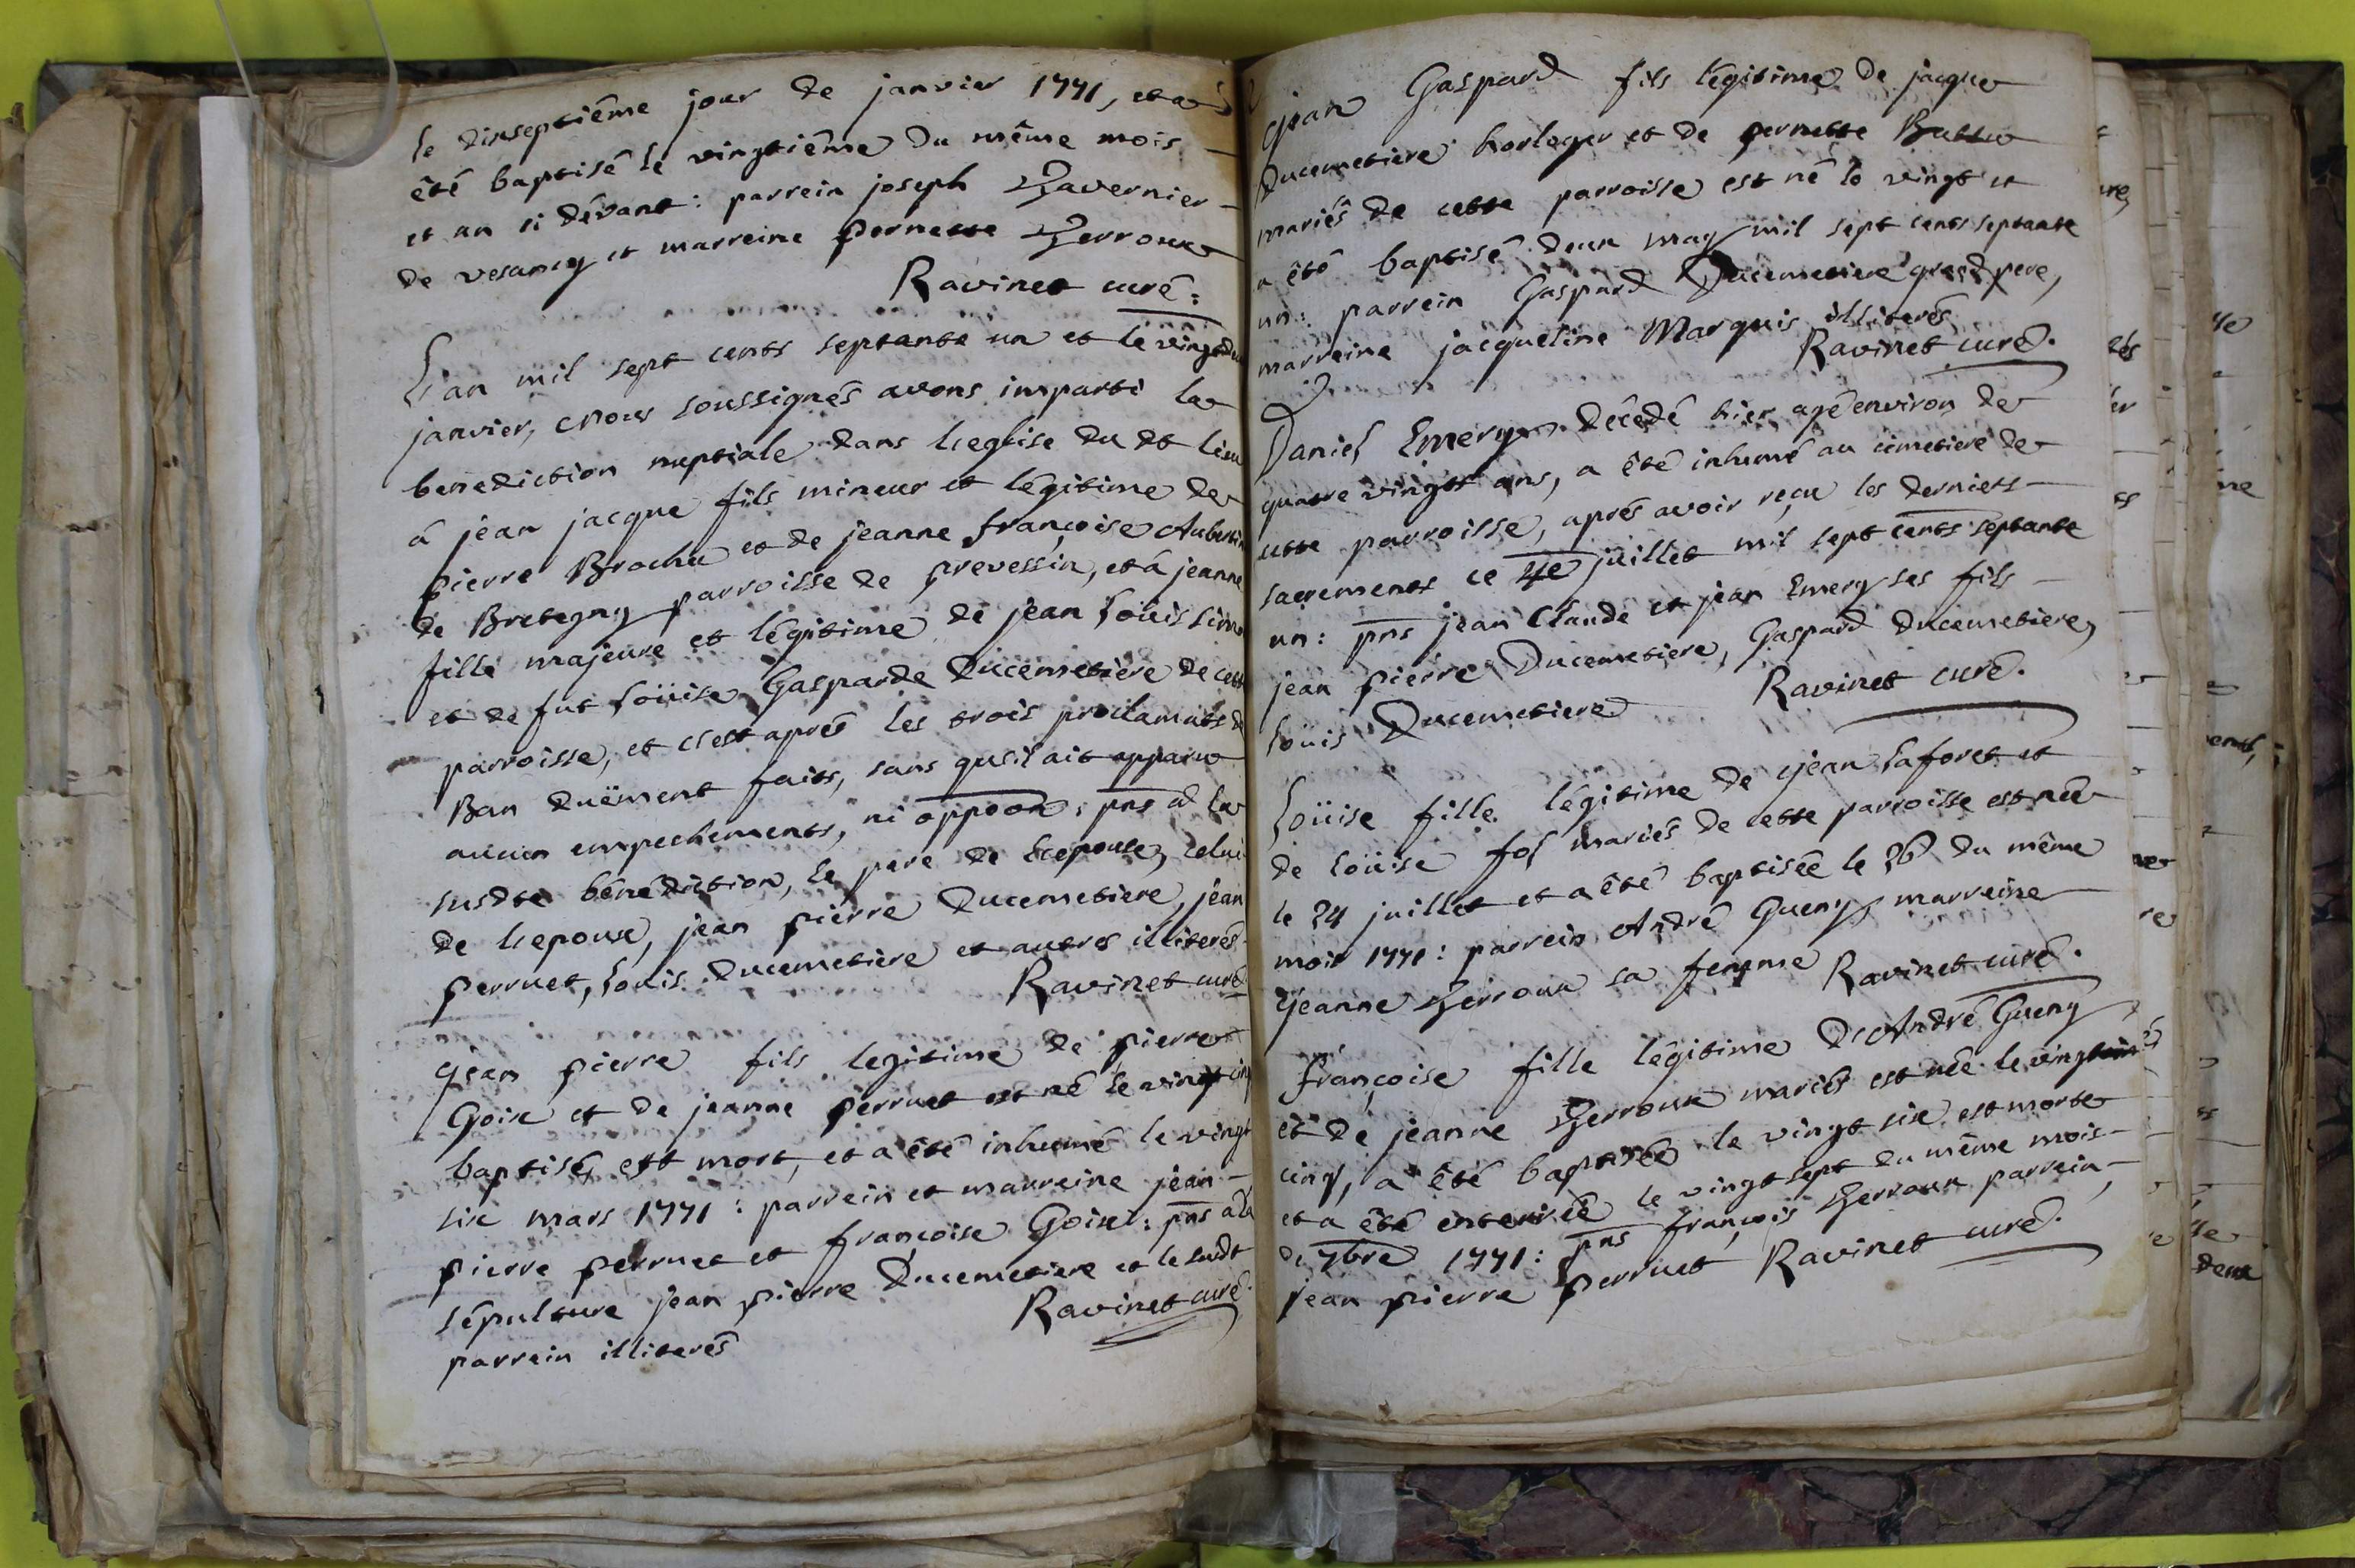 le dixseptiême jour de janvier 1771, et a
êté baptisé le vingtiême du même mois
et an ci dévant : parrein joseph Tavernier
de vesancy et marreine pernette Terroux
Ravinet curé :
L'an mil sept cents septante un et le vingt
janvier, Nous soussignés avons imparti la
benediction nuptiale dans l'eglise du dt lieu
à jean jacque fils mineur et légitime de
pierre Brochu et de jeanne françoise
de Bretegny parroisse de prevessin, et à jeanne
fille majeure et légitime de jean Loüis
et de fut Loüise Gasparde Ducemetière de cette
parroisse, et c'est aprés les trois proclamats de
Ban duëment faits, sans qu'il ait apparu
aucun empechements, ni oppoon : pns a la
susdte bénédiction, le pere de l'epouse, celui
de l'epoux, jean pierre Ducemetiere, jean
perruet, Loüis Ducemetière et autres illiterés
Ravinet curé
Jean pierre fils legitime de pierre
Goix et de jeanne perruet est né le vingt cinq
baptisé, est mort, et a êté inhumé le vingt
six mars 1771 : parrein et marreine jean
pierre perruet et françoise Goix : pns a la
sépulture jean pierre Ducemetiere et le sudt
parrein illiterés
Ravinet curé.
Jean Gaspard fils légitime de jacque
Ducemetiere horloger et de pernette
mariés de cette parroisse est né le vingt et
a êté baptisé deux may mil sept cents septante
un : parrein Gaspard Ducemetiere grand pere,
marreine jacqueline Marquis illiterés
Ravinet curé.
Daniel Emery décédé hier agé environ de
quatre vingt ans, a êté inhumé au cimetiere de
cette parroisse, aprés avoir reçu les derniers
sacrements ce 4e juillet mil sept cents septante
un : pns jean Claude et jean Emery ses fils
jean pierre Ducemetiere, Gaspard Ducemetiere,
Loüis Ducemetiere
Ravinet curé.
Loüise fille légitime de Jean Laforet et
de Loüise fol mariés de cette parroisse est née
le 24 juillet et a êté baptisée le 26 du même
mois 1771 : parrein André Gueny, marreine
Jeanne Terroux sa femme Ravinet curé.
françoise fille légitime D'André Gueny
et de jeanne Terroux mariés est née le vingt
cinq, a êté baptisée le vingt six est morte
et a êté enterrée le vingt sept du même mois
de 7bre 1771 : pns françois Terroux parrein,
jean pierre perruet Ravinet curé.